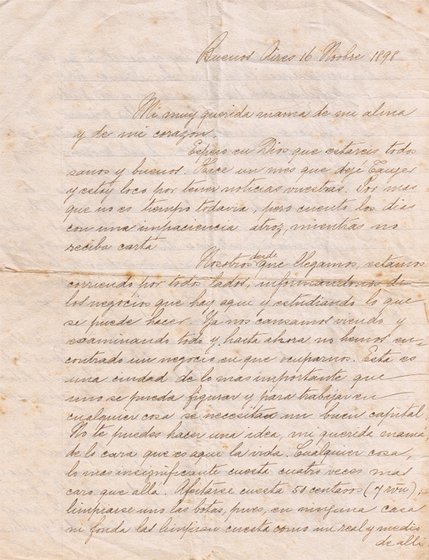 Buenos Aires 16 Novbre 1898
Mi muy querida mama de mi alma
y de mi corazon,
Espero en Dios que estareis todos
sanos y buenos. Hace un mes que dejé Tanger
y estoy loco por tener noticias vuestras. Por mas
que no es tiempo todavia, pero cuento los dias
con una impaciencia atroz, mientras no
reciba carta
Nosotros desde que llegamos, estamos
corriendo por todos lados, informandonos de
los negocios que hay aqui y estudiando lo que
se puede hacer. Ya nos cansamos viendo y
examinando todo y hasta ahora no hemos en-
contrado un negocio en que ocuparnos. Esta es
una ciudad de lo mas importante que
uno se pueda figurar y para trabajar en
cualquier cosa se necesitan un buen capital.
No te puedes hacer una idea, mi querida mama
de lo cara que es aqui la vida. Cualquier cosa,
lo mas insignificante cuesta cuatro veces mas
caro que alla. Afeitarse cuesta 50 centavos (7 rvn),
limpiarse uno las botas, pues, en ninguna casa
ni fonda las limpian cuesta como un real y medio
de alli